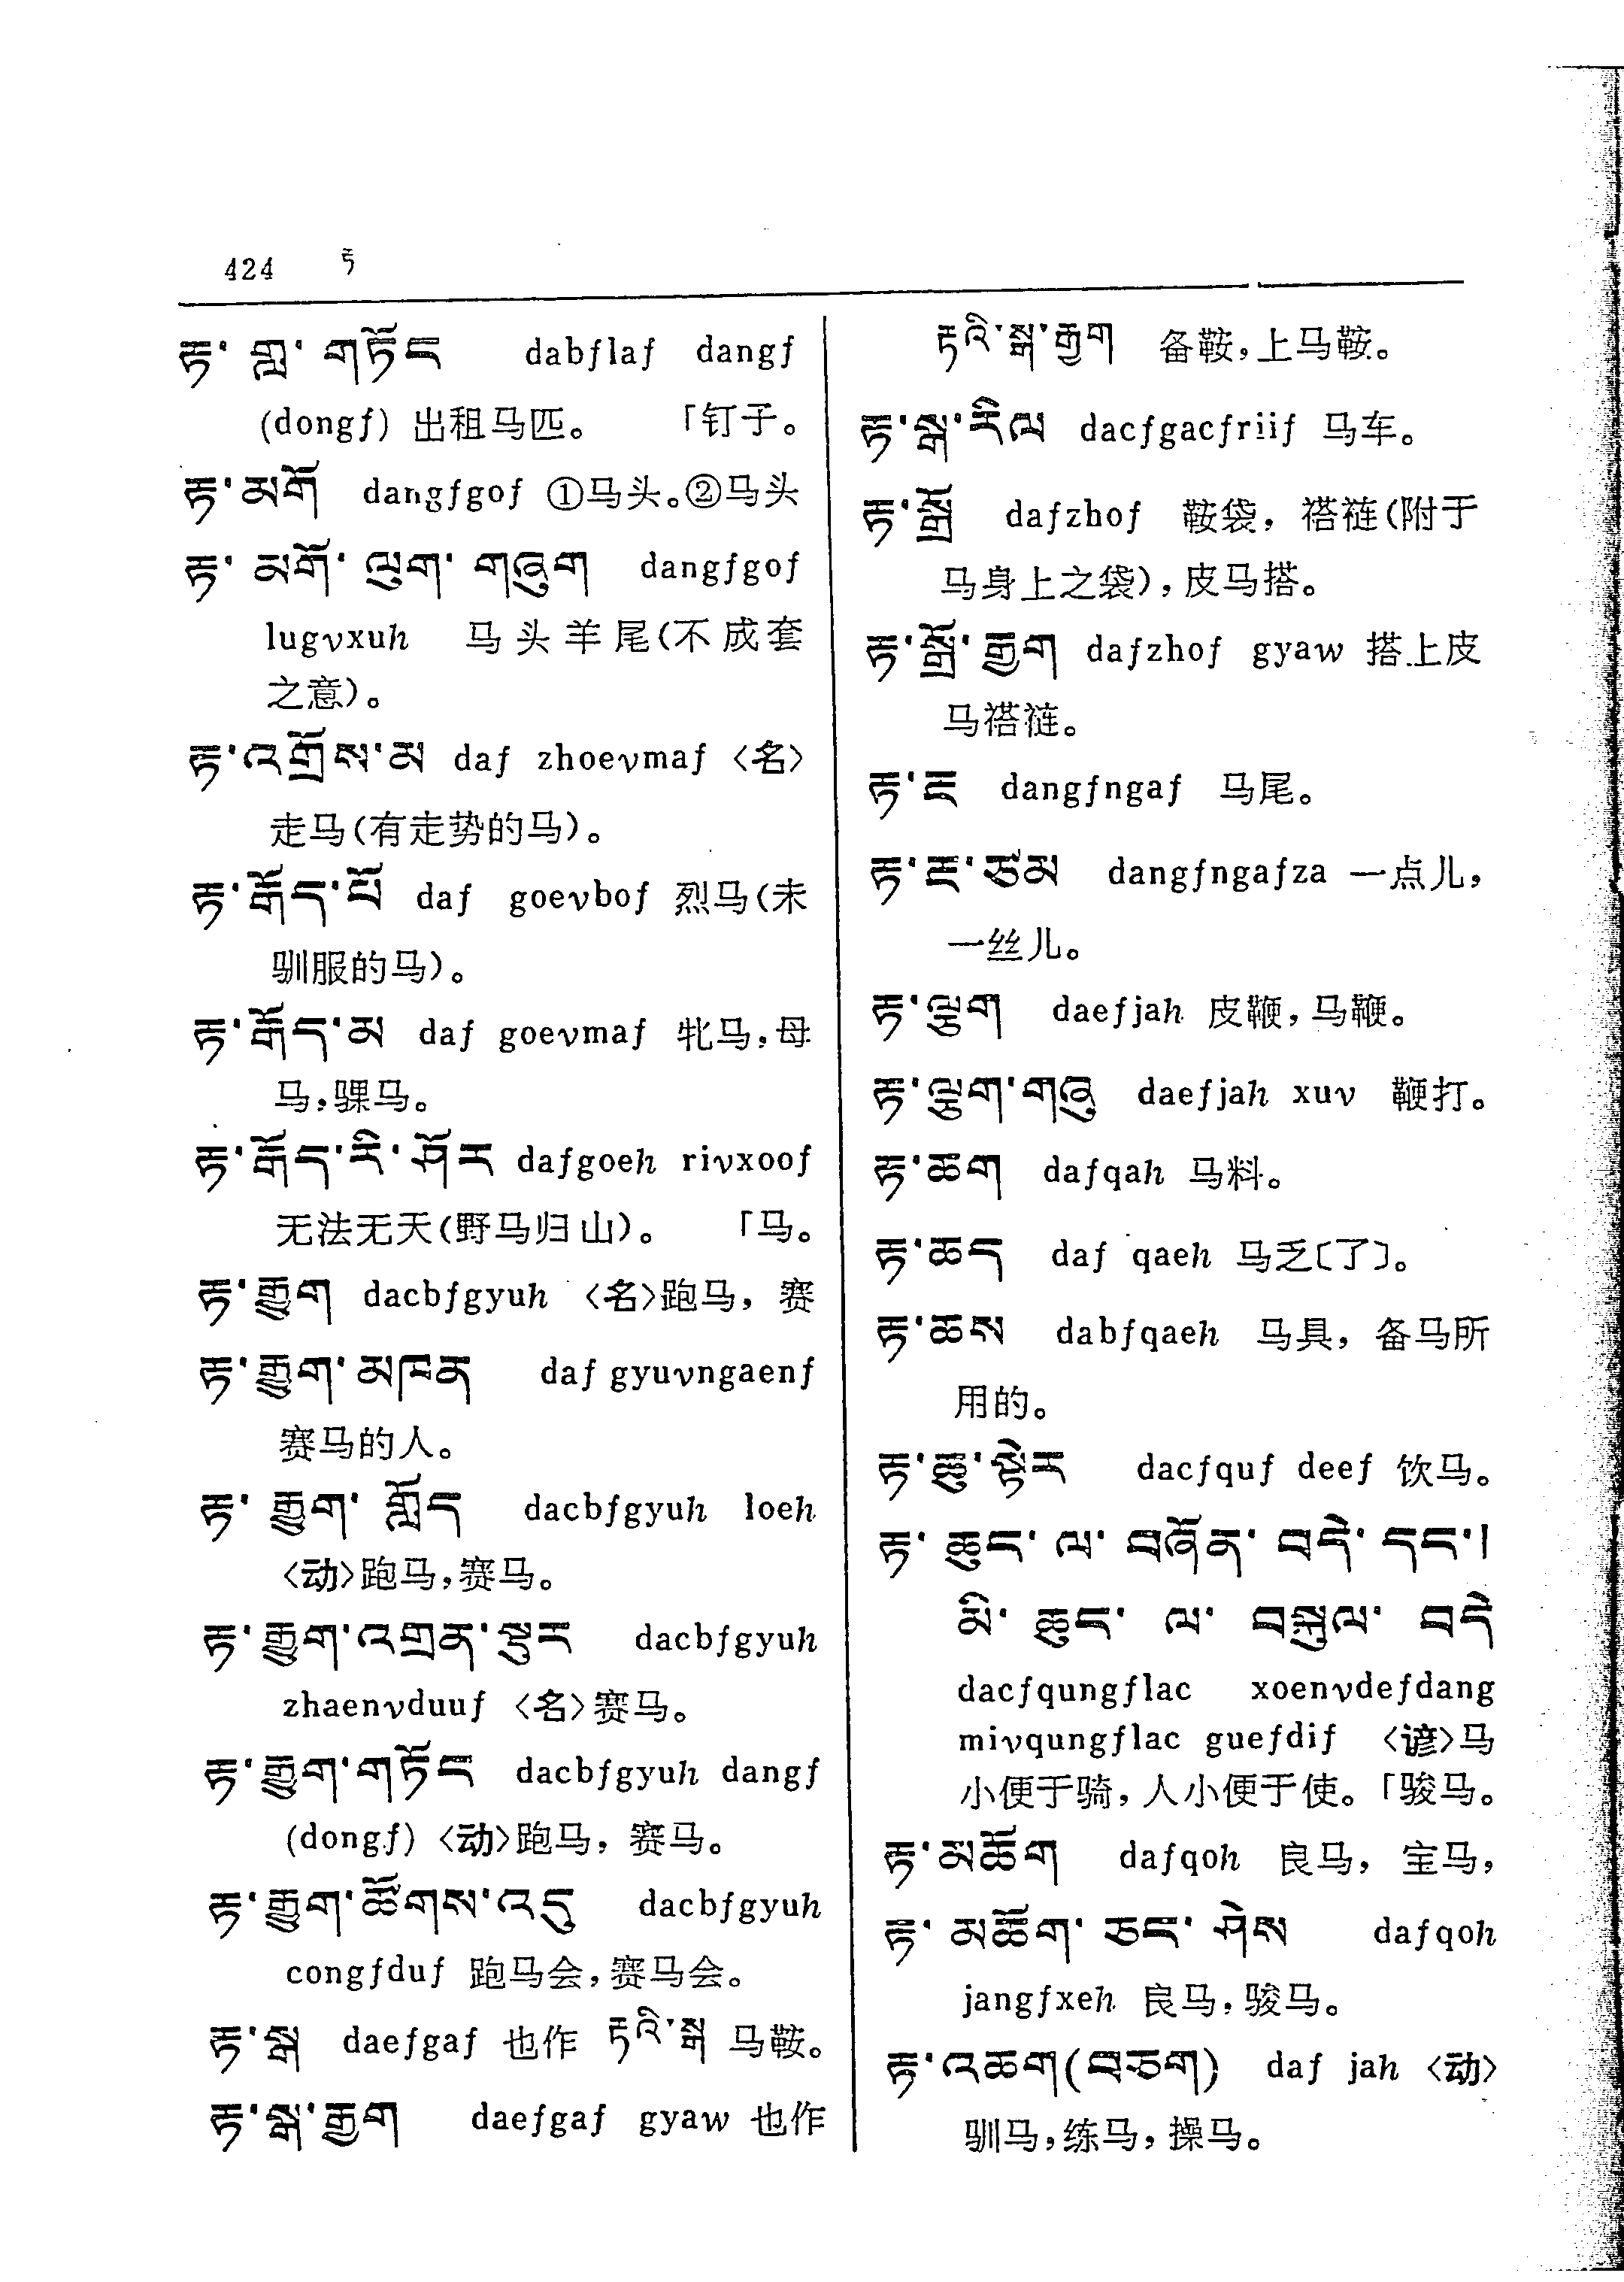 424 ཏ
རྟ་ གླ་ གཏོང dabflaf dangf
(dongf) 出租马匹。 「钉子。
རྟ་མགོ dangfgof ①马头。②马头
རྟ་ མགོ་ ལུག་ གཞུག dangfgof
lugvxuh 马头羊尾(不成套
之意)。
རྟ་འགྲོས་མ daf zhoevmaf 〈名〉
走马(有走势的马)。
རྟ་རྒོད་པོ daf goevbof 烈马(未
驯服的马)。
རྟ་རྒོད་མ daf goevmaf 牝马,母
马,骒马。
རྟ་རྒོད་རི་ ཤོར dafgoeh rivxoof
无法无天(野马归山)。 「马。
རྟ་རྒྱུག dacbfgyuh 〈名〉跑马, 赛
རྟ་རྒྱུག་མཁན daf gyuvngaenf
赛马的人。
རྟ་ རྒྱུག་ གློད dacbfgyuh loeh
〈动〉跑马,赛马。
རྟ་རྒྱུག་འགྲན་སྡུར dacbfgyuh
zhaenvduuf 〈名〉赛马。
རྟ་རྒྱུག་གཏོང dacbfgyuh dangf
(dongf) 〈动〉跑马, 赛马。
རྟ་རྒྱུག་ཚོགས་འདུ dacbfgyuh
congfduf 跑马会,赛马会。
རྟ་སྒ daefgaf 也作 རྟའི་སྒ 马鞍。
རྟ་སྒ་རྒྱག daefgaf gyaw 也作
རྟའི་སྒ་རྒྱག 备鞍,上马鞍。
རྟ་སྒ་རིལ dacfgacfriif 马车。
རྟ་སྒྲོ dafzhof 鞍袋, 褡裢(附于
马身上之袋), 皮马搭。
རྟ་སྒྲོ་རྒྱག dafzhof gyaw 搭上皮
马褡裢。
རྟ་རྔ dangfngaf 马尾。
རྟ་རྔ་ཙམ dangfngafza 一点儿,
一丝儿。
རྟ་ལྕག daefjah 皮鞭,马鞭。
རྟ་ལྕག་གཞུ daefjah xuv 鞭打。
རྟ་ཆག dafqah 马料。
རྟ་ཆད daf qaeh 马乏〔了〕。
རྟ་ཆས dabfqaeh 马具, 备马所
用的。
རྟ་ཆུ་སྟེར dacfquf deef 饮马。
རྟ་ ཆུང་ ལ་ བཞོན་ བདེ་ དང་།
མི་ ཆུང་ ལ་ བསྐུལ་ བདེ
dacfqungflac xoenvdefdang
mivqungflac guefdif 〈谚〉马
小便于骑, 人小便于使。「骏马。
རྟ་མཆོག dafqoh 良马, 宝马,
རྟ་ མཆོག་ ཅང་ ཤེས dafqoh
jangfxeh 良马,骏马。
རྟ་འཆག(བཅག) daf jah 〈动〉
驯马,练马, 操马。